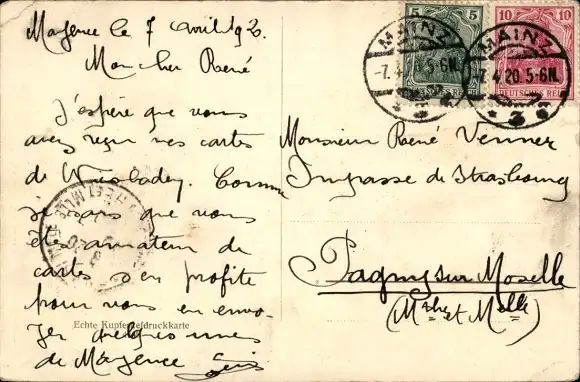 Mayence le 7 avril 1920.
Mon cher René
J'espère que vous
avez reçu mes cartes
de Wiesbaden. Comme
je sais que vous
êtes amateur de
cartes j'en profite
pour vous en envo-
yer quelques unes
de Mayence
Echte Kupfertiefdruckkarte
5 5
DEUTSCHES REICH
10 10
DEUTSCHES REICH
MAINZ
-7.4.20.5-6N.
MAINZ
-7.4.20.5-6N.
3
Monsieur René Venner
Impasse de Strasbourg
Pagny sur Moselle
(Mthe et Mlle)